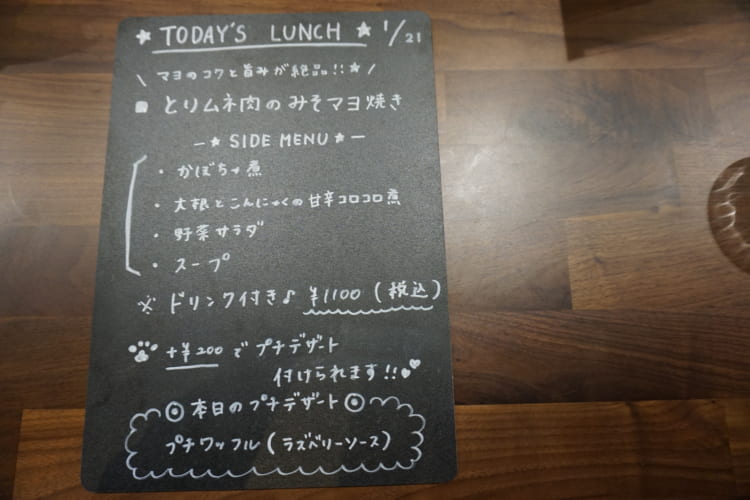 ★ TODAY'S LUNCH ★ 1/21
\ マヨのコクと旨みが絶品!!★ /
■ とりムネ肉のみそマヨ焼き
-★ SIDE MENU ★-
・かぼちゃ煮
・大根とこんにゃくの甘辛コロコロ煮
・野菜サラダ
・スープ
※ ドリンク付き♪ ¥1100 (税込)
+¥200 で プチデザート
付けられます!!
◎ 本日のプチデザート ◎
プチワッフル(ラズベリーソース)